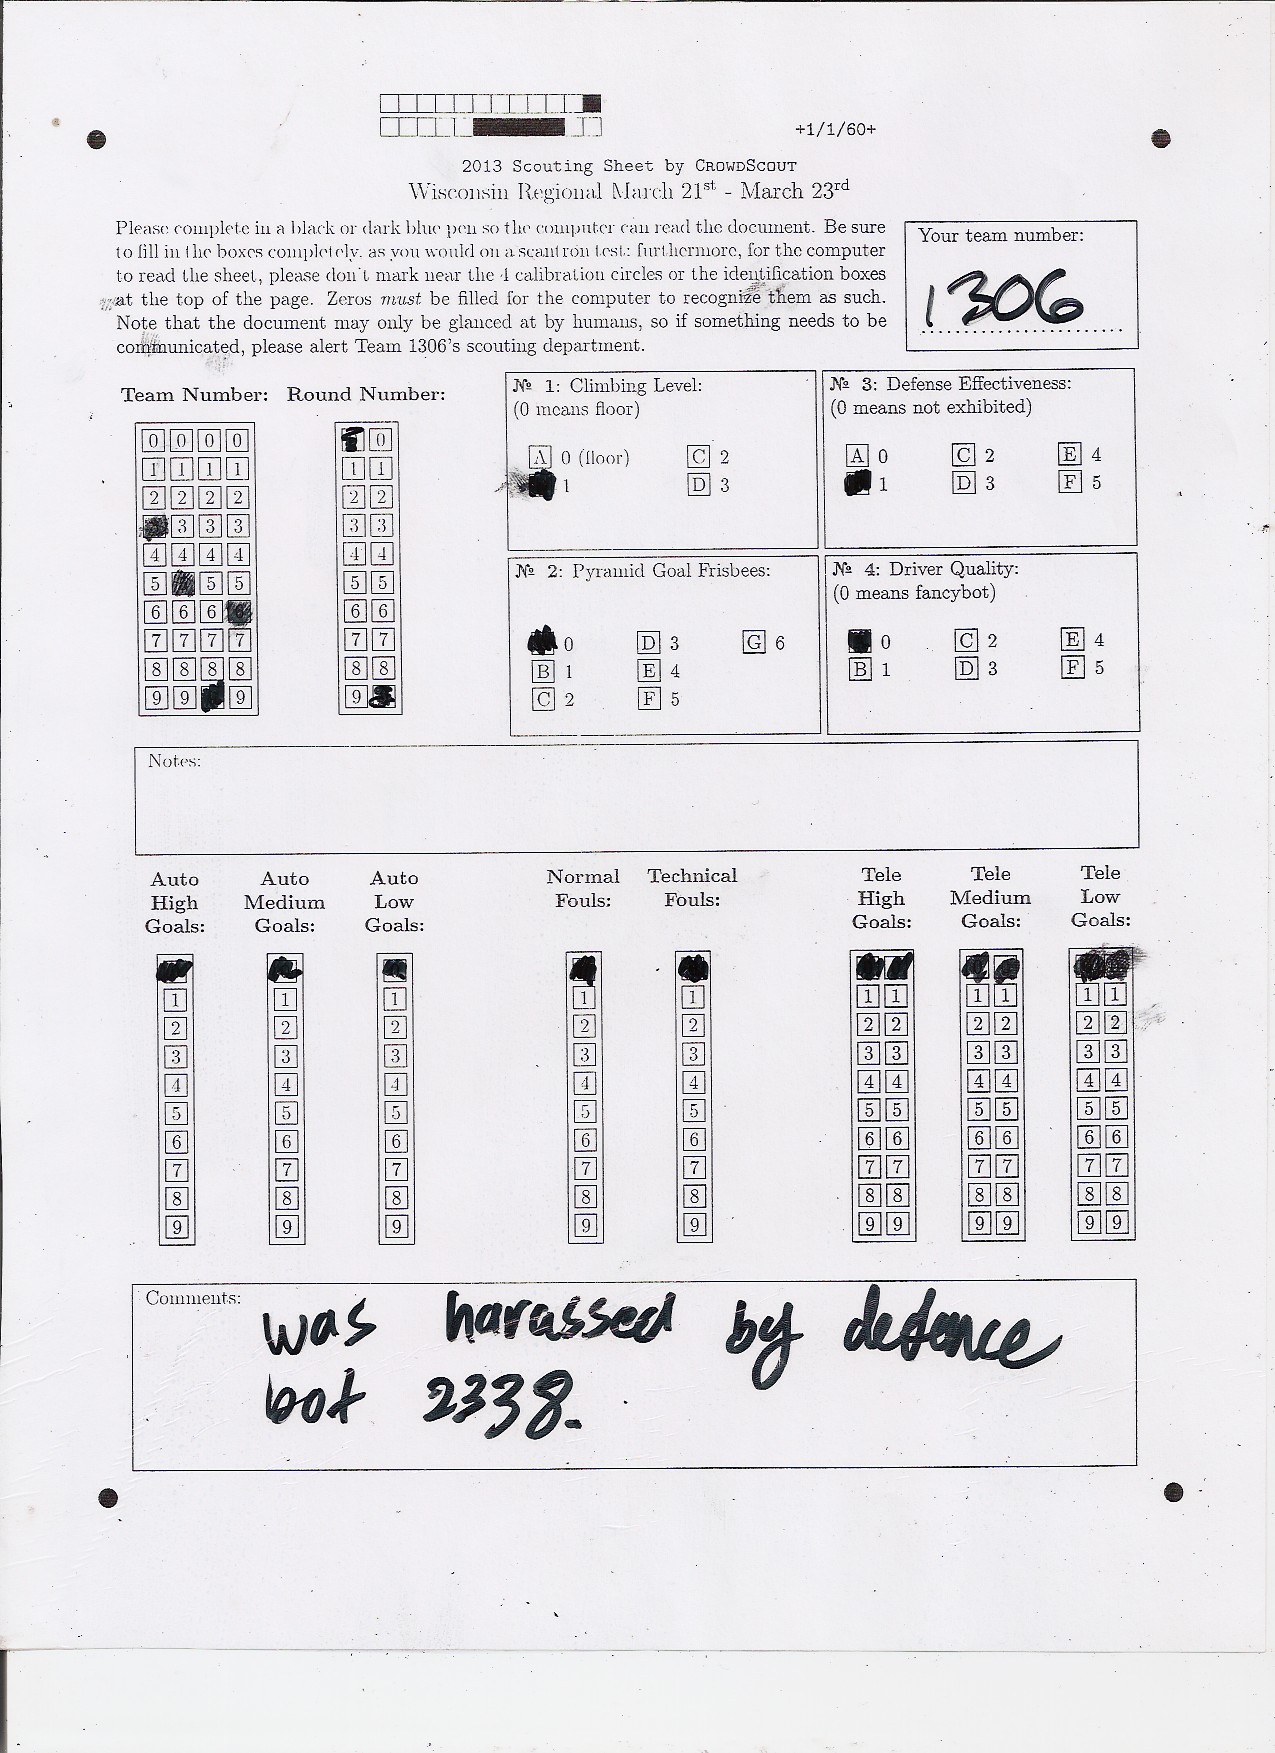 +1/1/60+
2013 Scouting Sheet by CROWDSCOUT
Wisconsin Regional March 21st - March 23rd
Please complete in a black or dark blue pen so the computer can read the document. Be sure
to fill in the boxes completely, as you would on a scantron test; furthermore, for the computer
to read the sheet, please don't mark near the 4 calibration circles or the identification boxes
at the top of the page. Zeros must be filled for the computer to recognize them as such.
Note that the document may only be glanced at by humans, so if something needs to be
communicated, please alert Team 1306's scouting department.
Your team number:
1306
Team Number: Round Number:
0 0 0 0 0
1 1 1 1 1 1
2 2 2 2 2 2
3 3 3 3 3
4 4 4 4 4 4
5 5 5 5 5
6 6 6 6 6
7 7 7 7 7 7
8 8 8 8 8 8
9 9 9 9
№ 1: Climbing Level:
(0 means floor)
A 0 (floor) C 2
1 D 3
№ 3: Defense Effectiveness:
(0 means not exhibited)
A 0 C 2 E 4
1 D 3 F 5
№ 2: Pyramid Goal Frisbees:
0 D 3 G 6
B 1 E 4
C 2 F 5
№ 4: Driver Quality:
(0 means fancybot)
0 C 2 E 4
B 1 D 3 F 5
Notes:
Auto High Goals:
Auto Medium Goals:
Auto Low Goals:
Normal Fouls:
Technical Fouls:
Tele High Goals:
Tele Medium Goals:
Tele Low Goals:
1 1 1 1 1 1 1 1 1 1 1
2 2 2 2 2 2 2 2 2 2 2
3 3 3 3 3 3 3 3 3 3 3
4 4 4 4 4 4 4 4 4 4 4
5 5 5 5 5 5 5 5 5 5 5
6 6 6 6 6 6 6 6 6 6 6
7 7 7 7 7 7 7 7 7 7 7
8 8 8 8 8 8 8 8 8 8 8
9 9 9 9 9 9 9 9 9 9 9
Comments:
was harassed by defence
bot 2338.